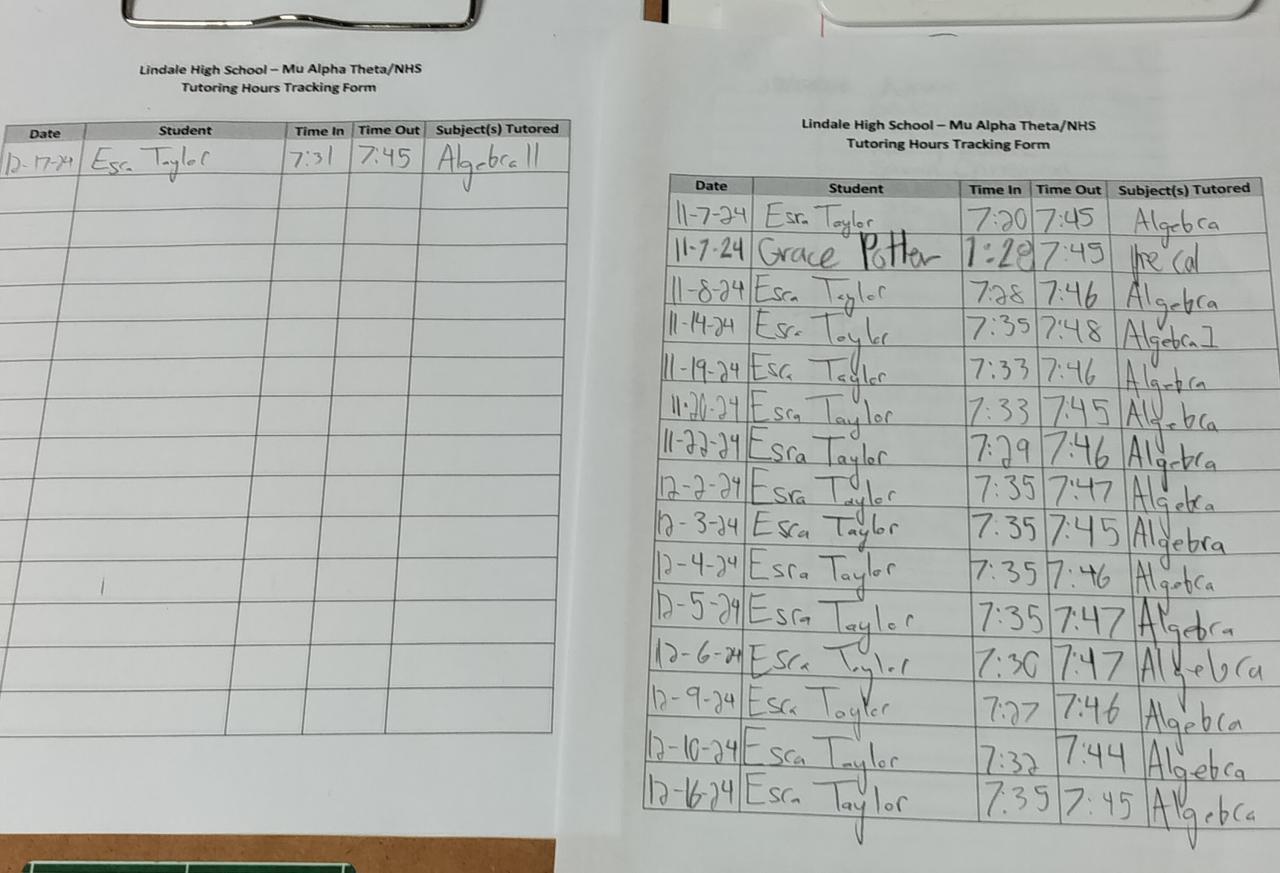 Lindale High School – Mu Alpha Theta/NHS
Tutoring Hours Tracking Form
Date Student Time In Time Out Subject(s) Tutored
12-17-24 Esra Taylor 7:31 7:45 Algebra II
Lindale High School – Mu Alpha Theta/NHS
Tutoring Hours Tracking Form
Date Student Time In Time Out Subject(s) Tutored
11-7-24 Esra Taylor 7:20 7:45 Algebra
11-7-24 Grace Potter 7:28 7:45 Pre cal
11-8-24 Esra Taylor 7:28 7:46 Algebra
11-14-24 Esra Taylor 7:35 7:48 Algebra I
11-19-24 Esra Taylor 7:33 7:46 Algebra
11-20-24 Esra Taylor 7:33 7:45 Algebra
11-22-24 Esra Taylor 7:29 7:46 Algebra
12-2-24 Esra Taylor 7:35 7:47 Algebra
12-3-24 Esra Taylor 7:35 7:45 Algebra
12-4-24 Esra Taylor 7:35 7:46 Algebra
12-5-24 Esra Taylor 7:35 7:47 Algebra
12-6-24 Esra Taylor 7:30 7:47 Algebra
12-9-24 Esra Taylor 7:27 7:46 Algebra
12-10-24 Esra Taylor 7:32 7:44 Algebra
12-16-24 Esra Taylor 7:35 7:45 Algebra